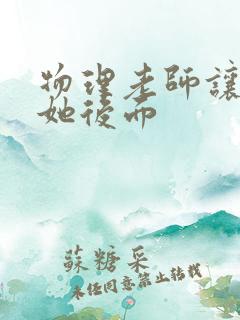 物理老師讓
她後而
蘇糖采
未任同意禁止转载